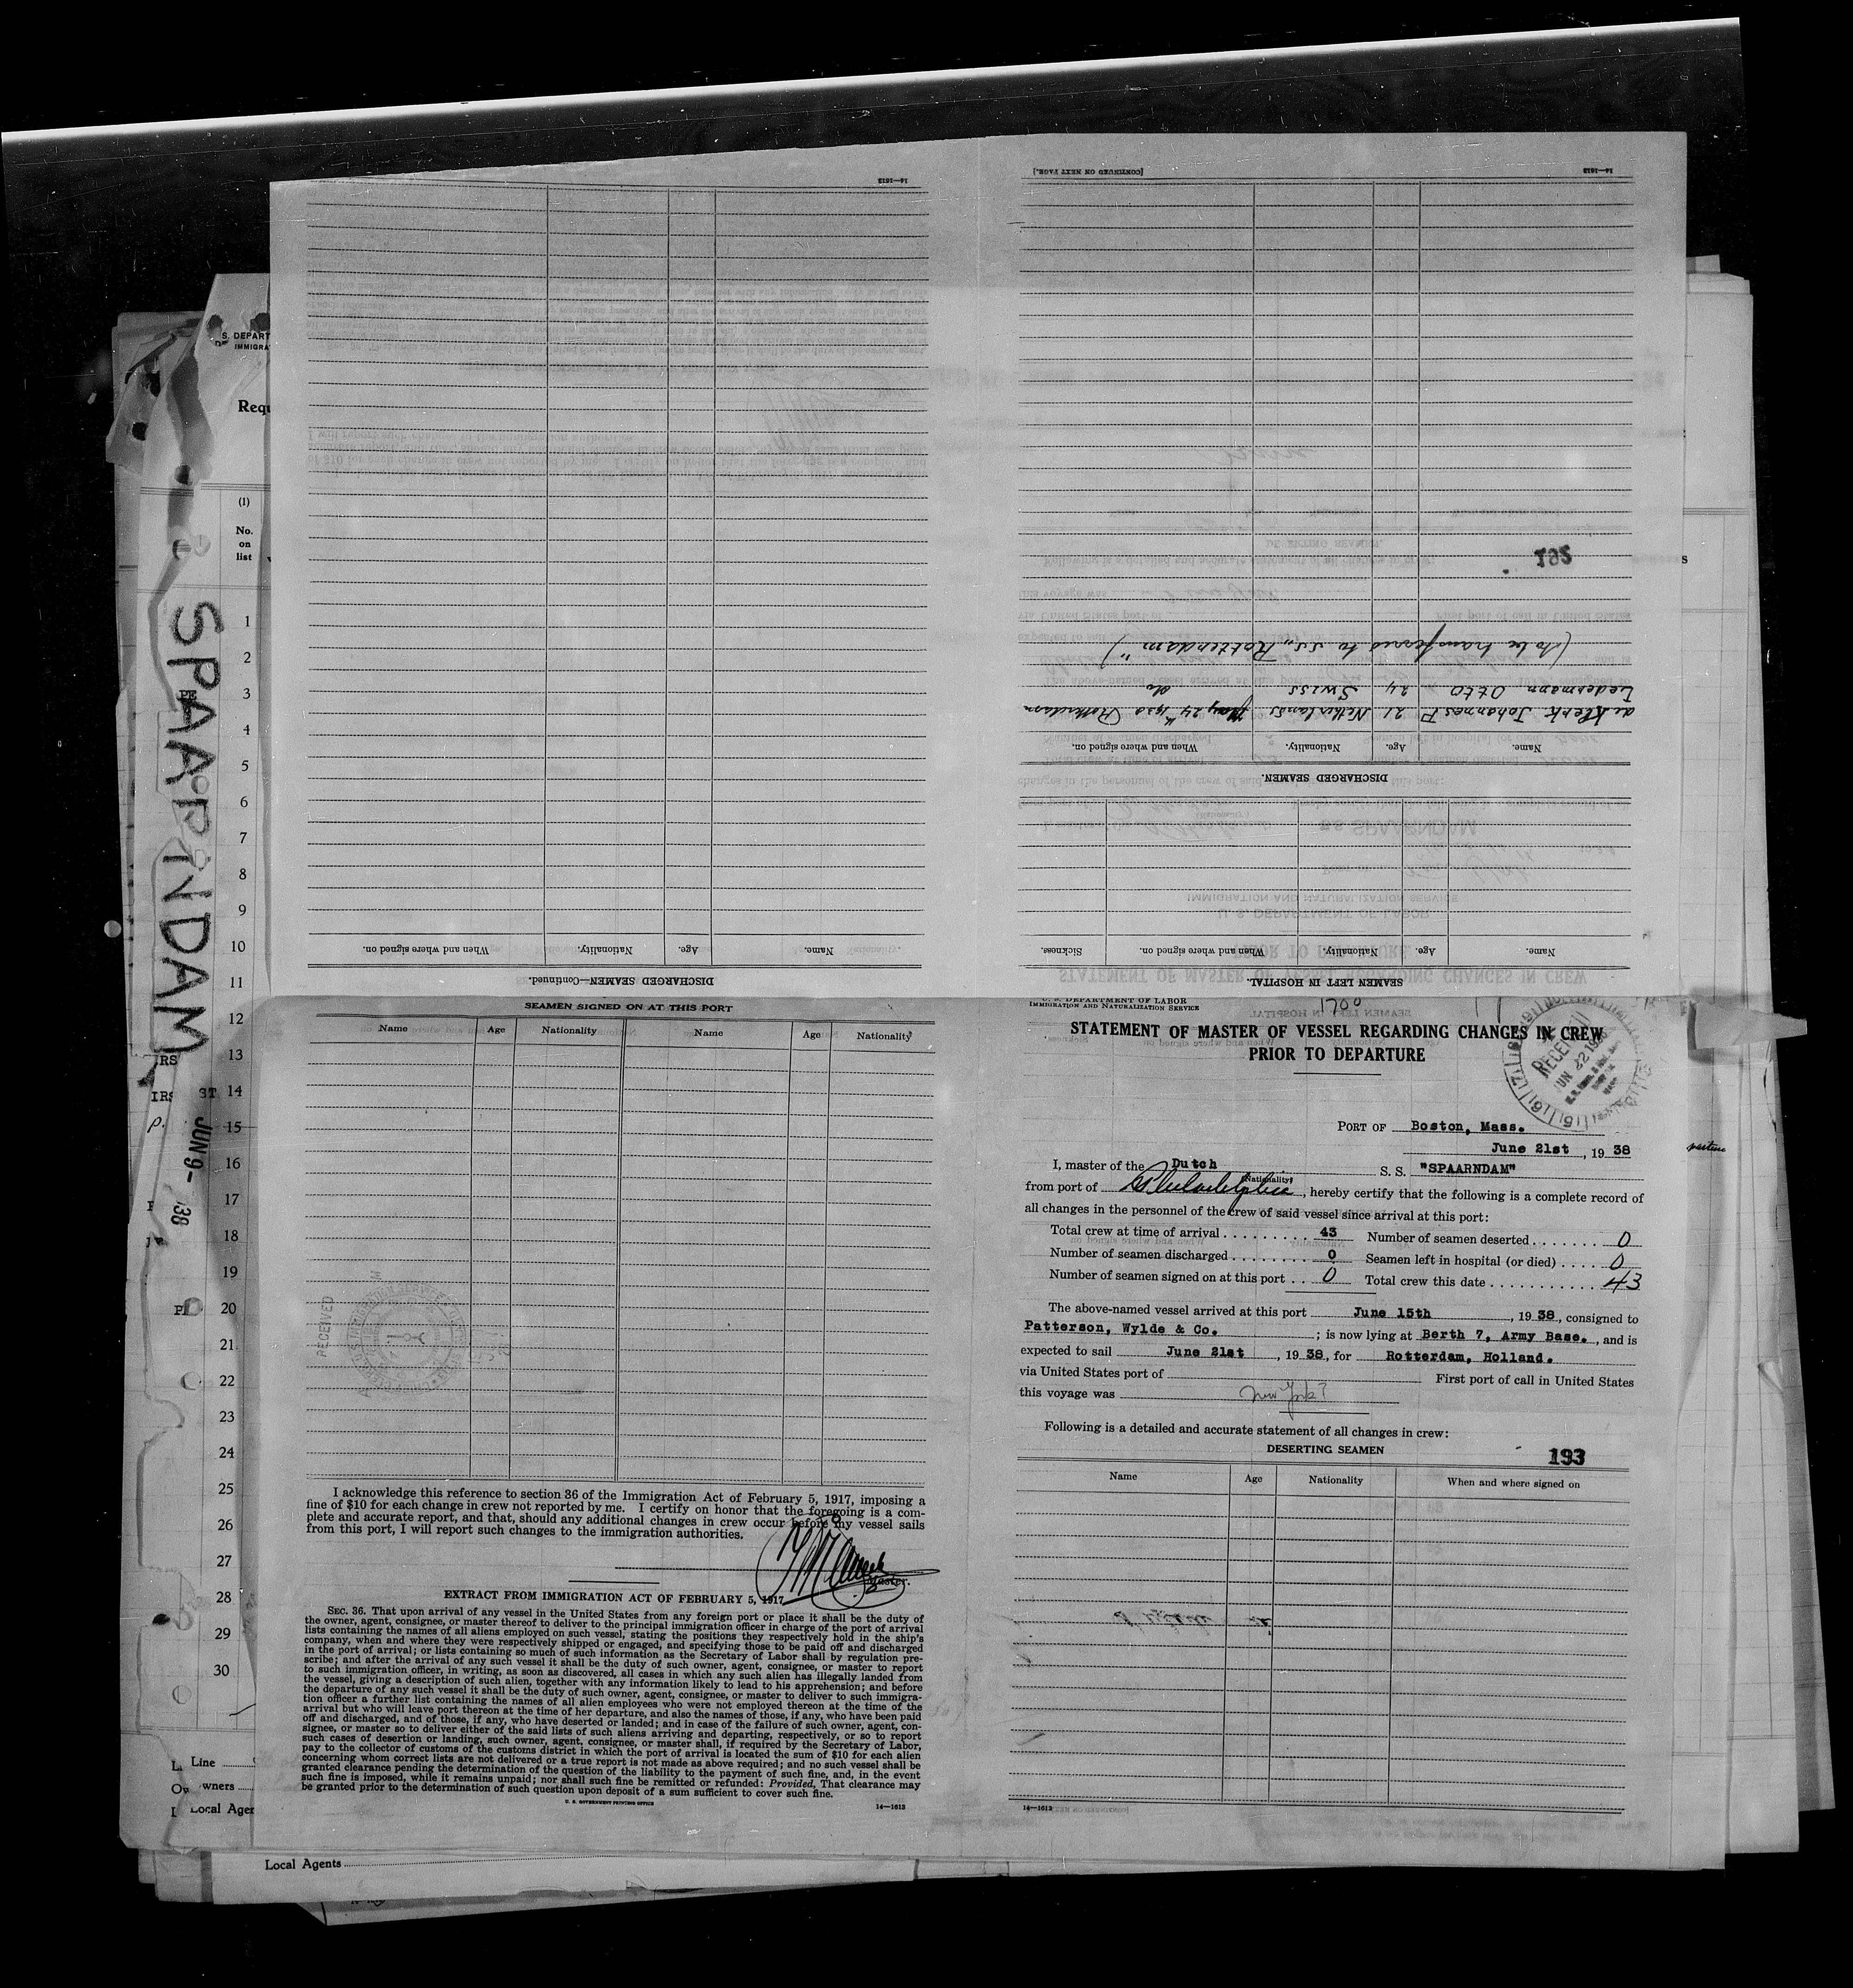 [CONTINUED ON NEXT PAGE.]
14—1613
14—1613
192
(to be transferred to s.s. „Rotterdam")
Ledermann Otto 24 Swiss do
de Klerk Johannes P 21 Netherlands May 24th Rotterdam
Name. Age. Nationality. When and where signed on.
DISCHARGED SEAMEN.
Name. Age. When and where signed on. Nationality. Sickness.
SEAMEN LEFT IN HOSPITAL.
Name. Age. Nationality. When and where signed on.
DISCHARGED SEAMEN—Continued.
S. DEPART
IMMIGRA
Requ
(1)
No.
on
list
1
2
3
4
5
6
7
8
9
10
11
12
13
14
15
16
17
18
19
20
21
22
23
24
25
26
27
28
29
30
SPAARNDAM
JUN 9- '38
Line
wners
Local Agen
Local Agents
SEAMEN SIGNED ON AT THIS PORT
Name Age Nationality Name Age Nationality
RECEIVED
I acknowledge this reference to section 36 of the Immigration Act of February 5, 1917, imposing a
fine of $10 for each change in crew not reported by me. I certify on honor that the foregoing is a com-
plete and accurate report, and that, should any additional changes in crew occur before my vessel sails
from this port, I will report such changes to the immigration authorities.
Master.
EXTRACT FROM IMMIGRATION ACT OF FEBRUARY 5, 1917
SEC. 36. That upon arrival of any vessel in the United States from any foreign port or place it shall be the duty of
the owner, agent, consignee, or master thereof to deliver to the principal immigration officer in charge of the port of arrival
lists containing the names of all aliens employed on such vessel, stating the positions they respectively hold in the ship's
company, when and where they were respectively shipped or engaged, and specifying those to be paid off and discharged
in the port of arrival; or lists containing so much of such information as the Secretary of Labor shall by regulation pre-
scribe; and after the arrival of any such vessel it shall be the duty of such owner, agent, consignee, or master to report
to such immigration officer, in writing, as soon as discovered, all cases in which any such alien has illegally landed from
the vessel, giving a description of such alien, together with any information likely to lead to his apprehension; and before
the departure of any such vessel it shall be the duty of such owner, agent, consignee, or master to deliver to such immigra-
tion officer a further list containing the names of all alien employees who were not employed thereon at the time of the
arrival but who will leave port thereon at the time of her departure, and also the names of those, if any, who have been paid
off and discharged, and of those, if any, who have deserted or landed; and in case of the failure of such owner, agent, con-
signee, or master so to deliver either of the said lists of such aliens arriving and departing, respectively, or so to report
such cases of desertion or landing, such owner, agent, consignee, or master shall, if required by the Secretary of Labor,
pay to the collector of customs of the customs district in which the port of arrival is located the sum of $10 for each alien
concerning whom correct lists are not delivered or a true report is not made as above required; and no such vessel shall be
granted clearance pending the determination of the question of the liability to the payment of such fine, and, in the event
such fine is imposed, while it remains unpaid; nor shall such fine be remitted or refunded: Provided, That clearance may
be granted prior to the determination of such question upon deposit of a sum sufficient to cover such fine.
U. S. GOVERNMENT PRINTING OFFICE
14—1613
U. S. DEPARTMENT OF LABOR
IMMIGRATION AND NATURALIZATION SERVICE
1700
STATEMENT OF MASTER OF VESSEL REGARDING CHANGES IN CREW
PRIOR TO DEPARTURE
RECEIVED
JUN 22 1938
PORT OF Boston, Mass.
June 21st, 19 38
I, master of the Dutch S. S. "SPAARNDAM"
(Nationality)
from port of Philadelphia, hereby certify that the following is a complete record of
all changes in the personnel of the crew of said vessel since arrival at this port:
Total crew at time of arrival 43 Number of seamen deserted 0
Number of seamen discharged 0 Seamen left in hospital (or died) 0
Number of seamen signed on at this port 0 Total crew this date 43
The above-named vessel arrived at this port June 15th, 19 38, consigned to
Patterson, Wylde & Co.; is now lying at Berth 7, Army Base., and is
expected to sail June 21st, 19 38, for Rotterdam, Holland.
via United States port of First port of call in United States
this voyage was New York?
Following is a detailed and accurate statement of all changes in crew:
DESERTING SEAMEN
193
Name Age Nationality When and where signed on
14—1613